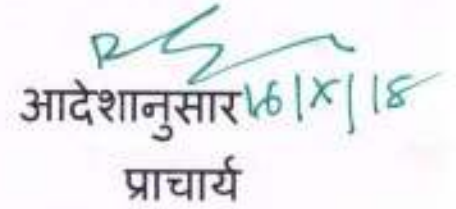 आदेशानुसार 16|X|18
प्राचार्य